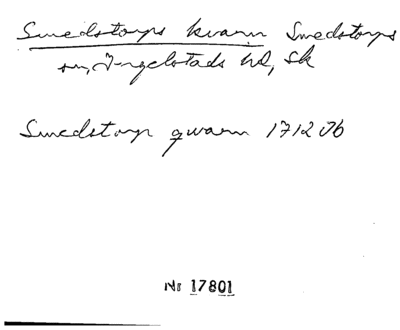 Smedstorps kvarn Smedstorps
sn, Ingelstads hd, Sk
Smedstorp qwarn 1712 Jb
Nr 17801